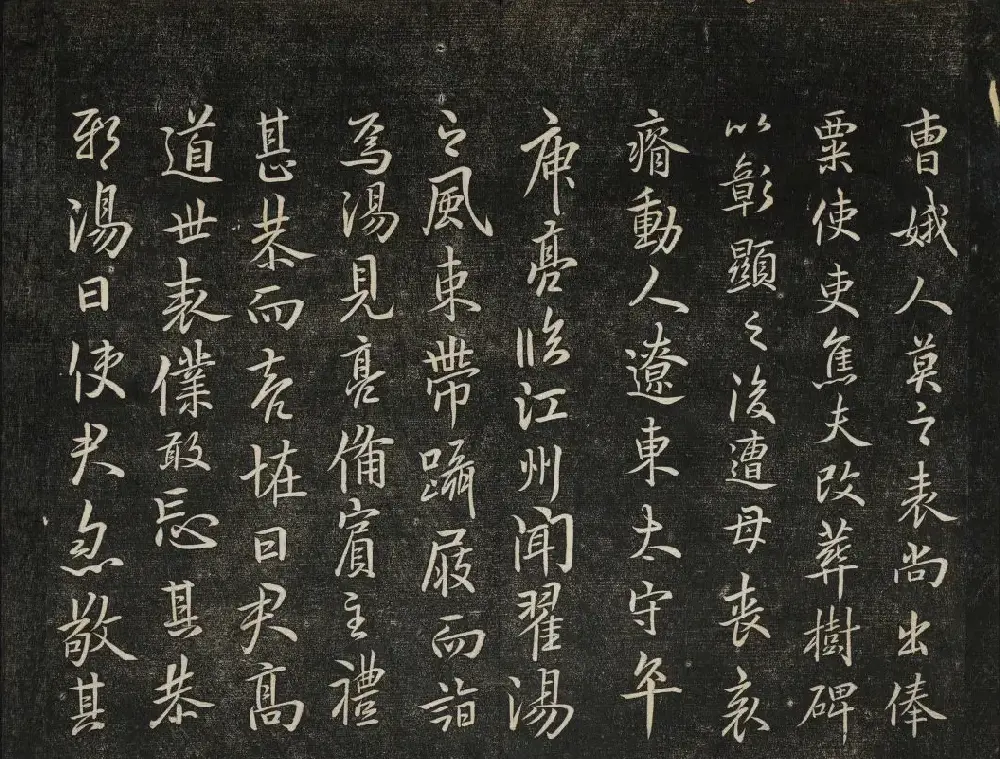 曹娥人莫之表尚出俸
粟使吏焦夫改葬樹碑
以彰顯之後遭母喪哀
瘠動人遼東太守卒
庾亮臨江州聞翟湯
之風束帶躡屐而詣
焉湯見亮備賓主禮
甚恭而亮喏曰君高
道世表僕敢忘其恭
邪湯曰使君忽敬其